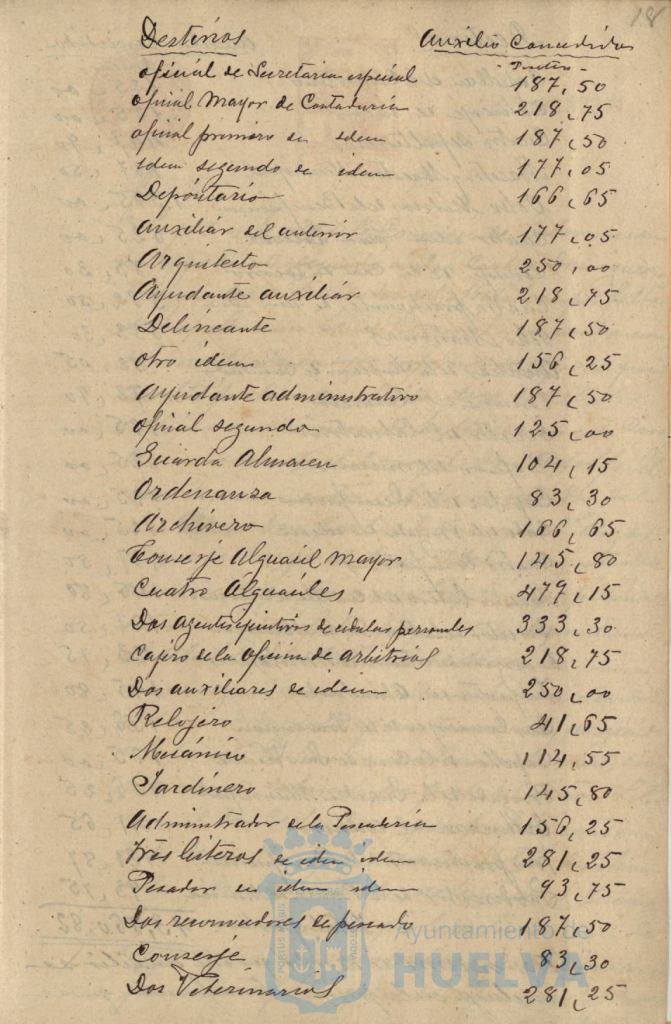 18
Destinos Auxilio Concedido
Pesetas
oficial de Secretaria especial 187,50
oficial Mayor de Contaduria 218,75
oficial primero de idem 187,50
idem segundo de idem 177,05
Depositario 166,65
Auxiliar del anterior 177,05
Arquitecto 250,00
Ayudante auxiliar 218,75
Delineante 187,50
otro idem 156,25
Ayudante administrativo 187,50
oficial segundo 125,00
Guarda Almacen 104,15
Ordenanza 83,30
Archivero 166,65
Conserje Alguacil mayor 145,80
Cuatro Alguaciles 479,15
Dos agentes ejecutivos de cédulas personales 333,30
Cajero de la oficina de arbitrios 218,75
Dos auxiliares de idem 250,00
Relojero 41,65
Mecánico 114,55
Jardinero 145,80
Administrador de la Pescaderia 156,25
Tres listeros de idem idem 281,25
Pesador de idem idem 93,75
Dos reconocedores de pescado 187,50
Conserje 83,30
Dos Veterinarios 281,25
Ayuntamiento de
HUELVA